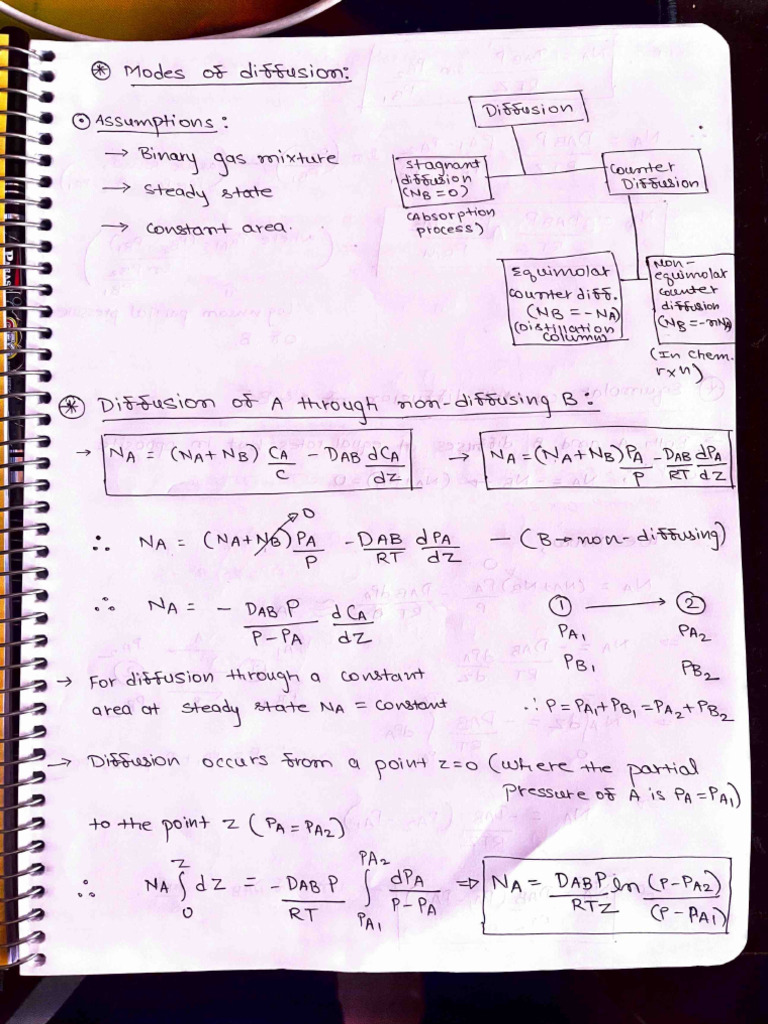 ⊛ Modes of diffusion:
Diffusion
⊙ Assumptions:
→ Binary gas mixture
→ Steady state
→ constant area.
Stagnant
diffusion
(NB=0)
(Absorption
process)
Counter
Diffusion
Equimolar
counter diff.
(NB=-NA)
(Distillation
column)
Non-
equimolar
counter
diffusion
(NB=-mNA)
(In chem.
rxn)
⊛ Diffusion of A through non-diffusing B:
→ NA = (NA+NB) CA/C - DAB dCA/dz → NA=(NA+NB) PA/P - DAB/RT dPA/dz
∴ NA = (NA+NB)→0 PA/P - DAB/RT dPA/dz — (B→non-diffusing)
∴ NA = - DAB P/P-PA dCA/dz ① → ②
PA1 PA2
PB1 PB2
→ For diffusion through a constant
area at steady state NA = constant ∴ P=PA1+PB1=PA2+PB2
→ Diffusion occurs from a point z=0 (where the partial
pressure of A is PA=PA1)
to the point z (PA=PA2)
∴ NA ∫0^z dz = - DAB P/RT ∫PA1^PA2 dPA/P-PA ⇒ NA = DABP/RTz ln (P-PA2)/(P-PA1)